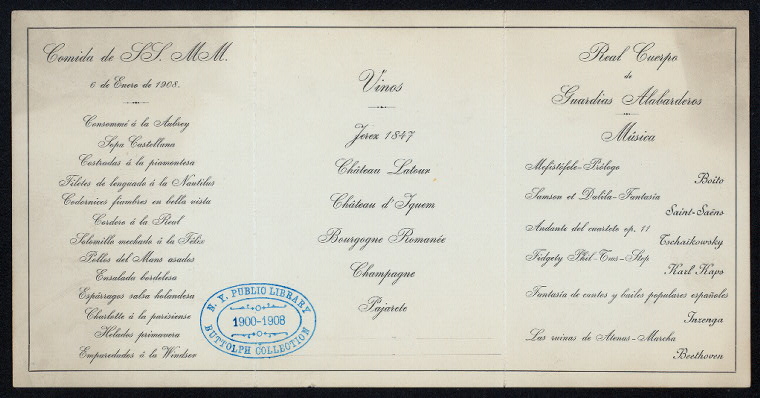 Comida de SS. MM.
6 de Enero de 1908.
Consommé á la Aubrey
Sopa Castellana
Costradas á la piamontesa
Filetes de lenguado á la Nautilus
Codornices fiambres en bella vista
Cordero á la Real
Solomillo mechado á la Félix
Pollos del Mans asados
Ensalada bordelesa
Espárragos salsa holandesa
Charlotte á la parisiense
Helados primavera
Emparedados á la Windsor
N. Y. PUBLIC LIBRARY
1900-1908
BUTTOLPH COLLECTION
Vinos
Jerez 1847
Château Latour
Château d'Iquem
Bourgogne Romanée
Champagne
Pajarete
Real Cuerpo
de
Guardias Alabarderos
Música
Mefistófele-Prólogo
Boito
Samson et Dalila-Fantasia
Saint-Saëns
Andante del cuarteto op. 11
Tschaikowsky
Fidgety Phil-Two-Step
Karl Kaps
Fantasía de cantos y bailes populares españoles
Inzenga
Las ruinas de Atenas-Marcha
Beethoven